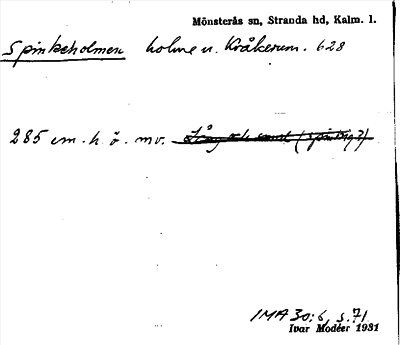 Mönsterås sn, Stranda hd, Kalm. l.
Spinkeholmen holme u. Kråkerum. 628
285 cm. h. ö. mv.
IMA 30:6, s. 71
Ivar Modéer 1931